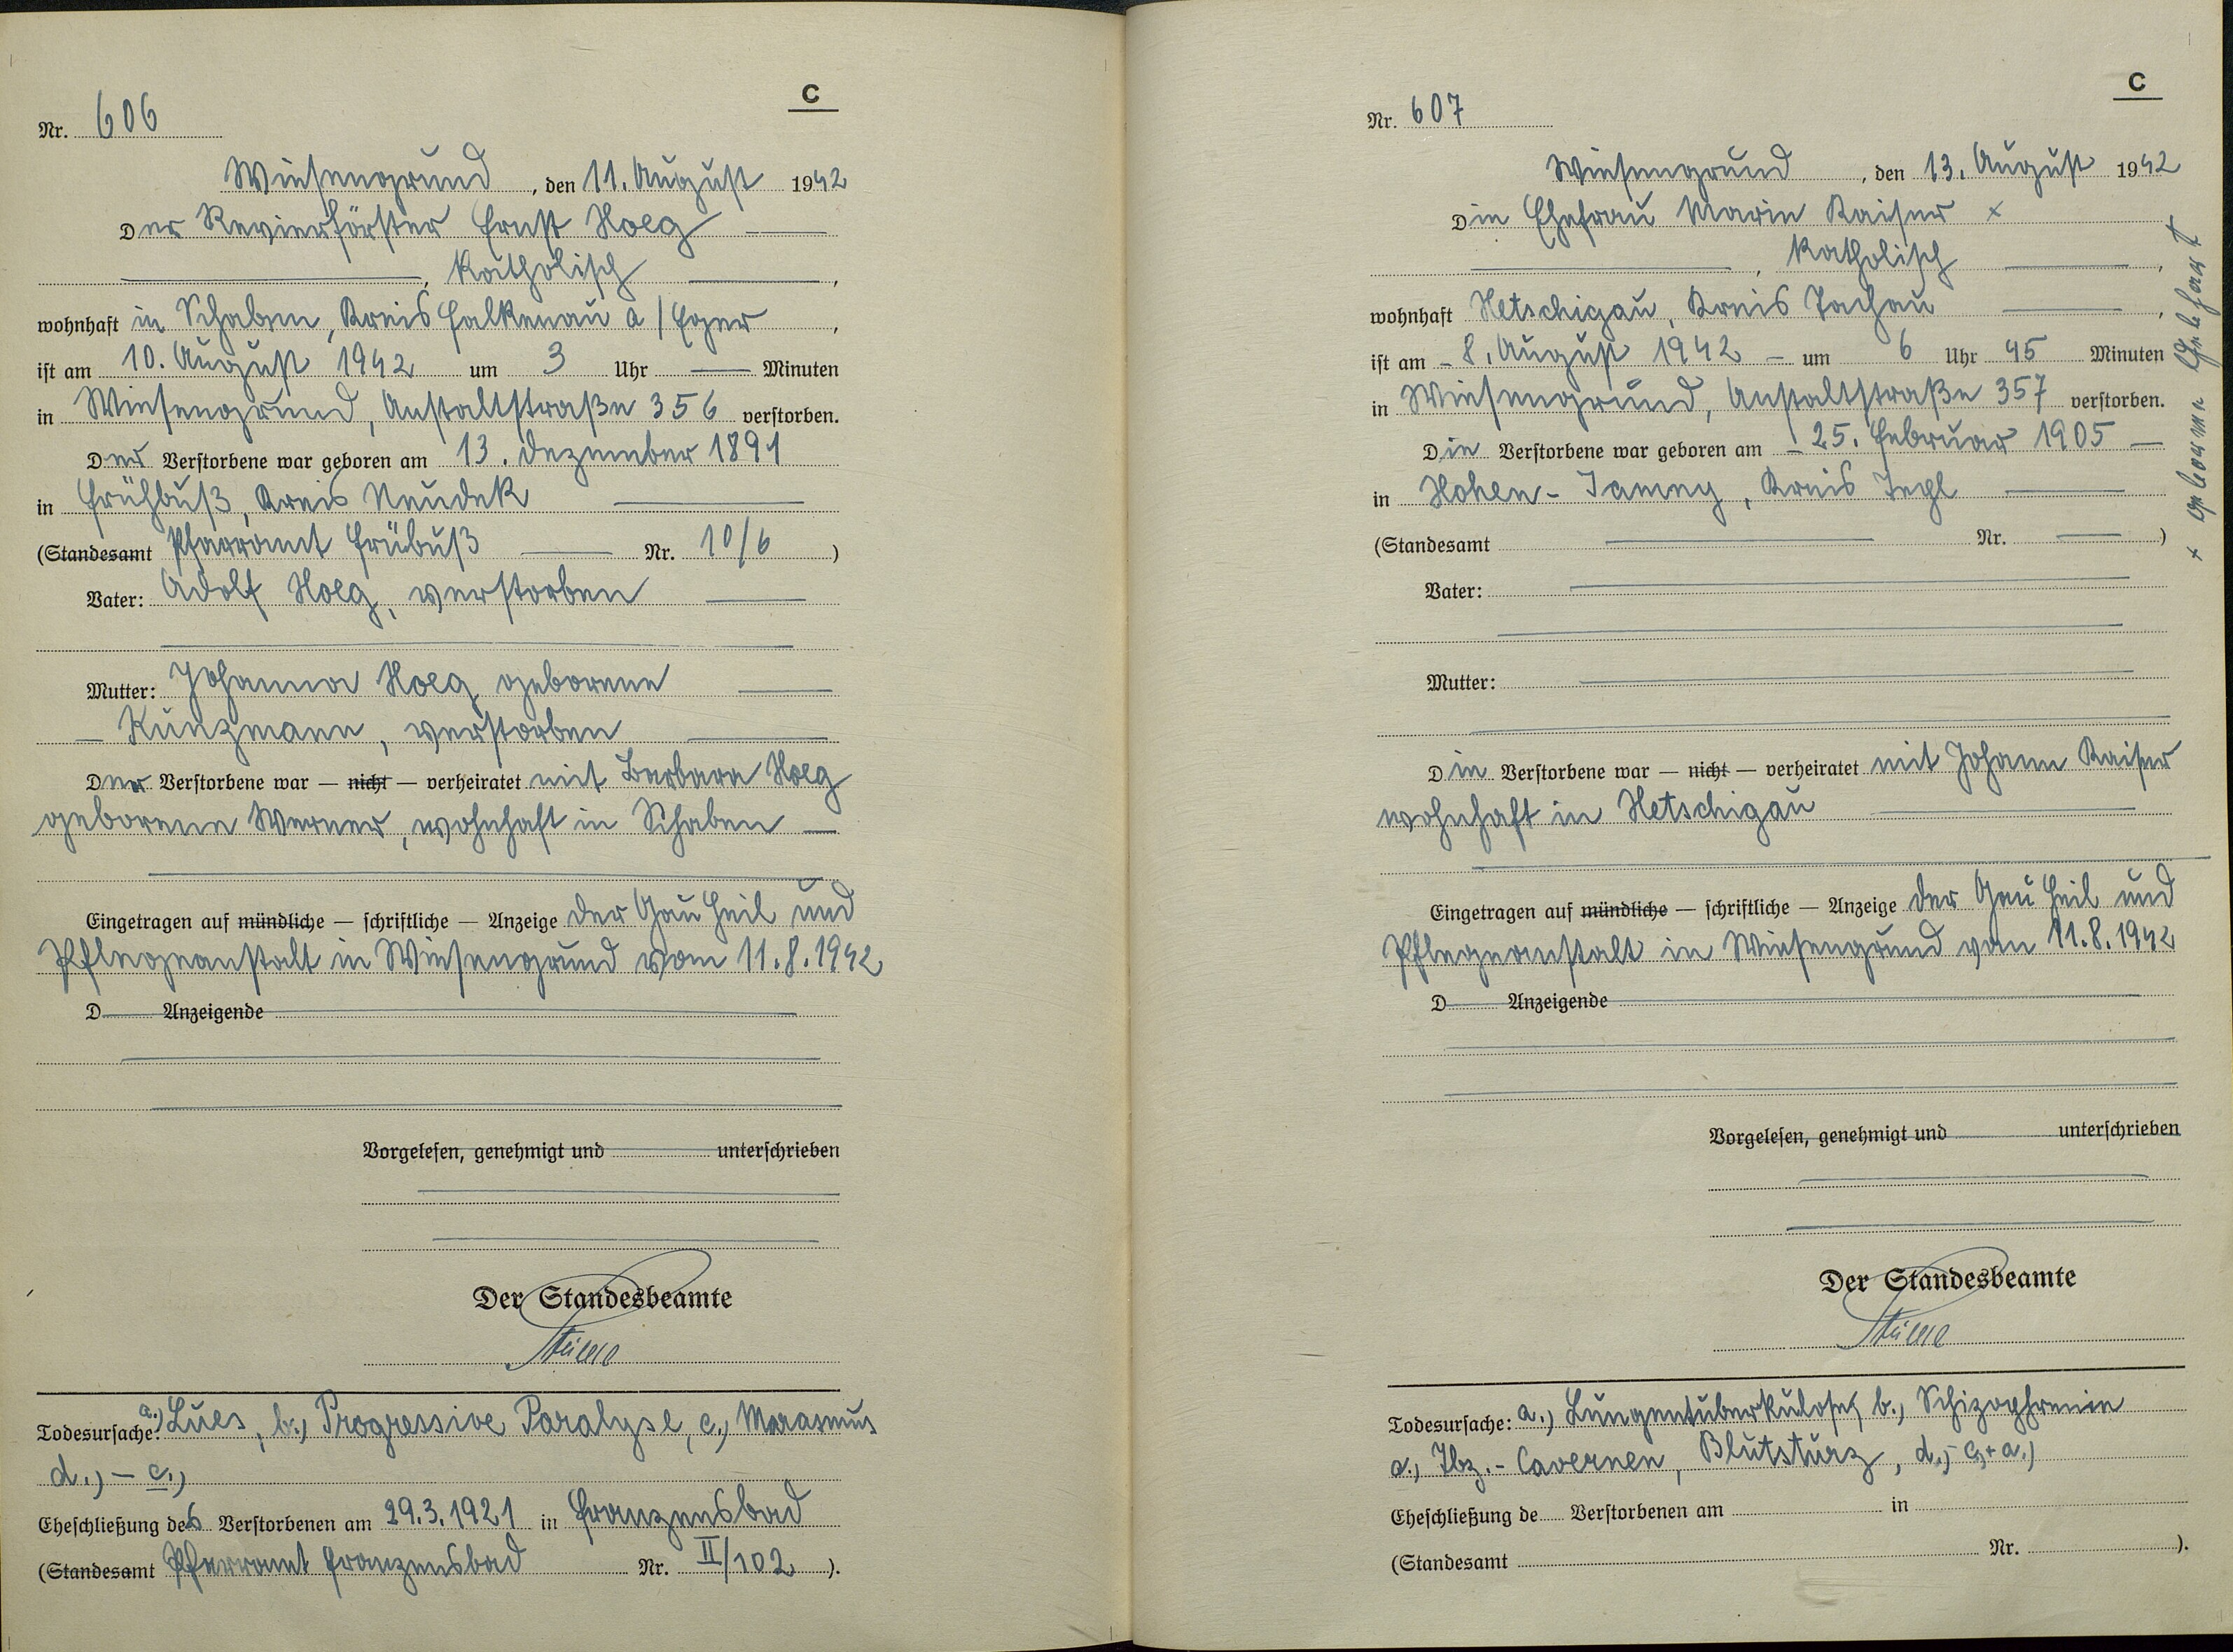 C
Nr. 606
Wiesengrund, den 11. August 1942
Der Revierförster Ernst Hoeg
, katholisch ,
wohnhaft in Schaben, Kreis Falkenau a/Eger ,
ist am 10. August 1942 um 3 Uhr Minuten
in Wiesengrund, Anstaltstraße 356 verstorben.
Der Verstorbene war geboren am 13. Dezember 1891
in Frühbuß, Kreis Neudek
(Standesamt Pfarramt Frübuß Nr. 10/6 )
Vater: Adolf Hoeg, verstorben
Mutter: Johanna Hoeg geborene
Kunzmann, verstorben
Der Verstorbene war — nicht — verheiratet mit Barbara Hoeg
geborene Werner, wohnhaft in Schaben
Eingetragen auf mündliche — schriftliche — Anzeige der Gau Heil und
Pflegeanstalt in Wiesengrund vom 11.8.1942
D Anzeigende
Vorgelesen, genehmigt und unterschrieben
Der Standesbeamte
Todesursache: a.) Lues, b.) Progressive Paralyse, c.) Marasmus
d.) – c.)
Eheschließung des Verstorbenen am 29.3.1921 in Franzensbad
(Standesamt Pfarramt Franzensbad Nr. II/102 ).
C
Nr. 607
Wiesengrund, den 13. August 1942
Die Ehefrau Marie Kaiser x
, katholisch ,
wohnhaft Hetschigau, Kreis Tachau ,
ist am – 8. August 1942 – um 6 Uhr 45 Minuten
in Wiesengrund, Anstaltstraße 357 verstorben.
Die Verstorbene war geboren am – 25. Februar 1905 –
in Hohen-Jamny, Kreis
(Standesamt Nr. )
Vater:
Mutter:
Die Verstorbene war — nicht — verheiratet mit Johann Kaiser
wohnhaft in Hetschigau
Eingetragen auf mündliche — schriftliche — Anzeige der Gau Heil und
Pflegeanstalt in Wiesengrund vom 11.8.1942
D Anzeigende
Vorgelesen, genehmigt und unterschrieben
Der Standesbeamte
Todesursache: a.) Lungentuberkulose, b.) Schizophrenie
c.) Tbz.- Cavernen, Blutsturz, d.) c + a.)
Eheschließung de Verstorbenen am in
(Standesamt Nr. ).
x geborene